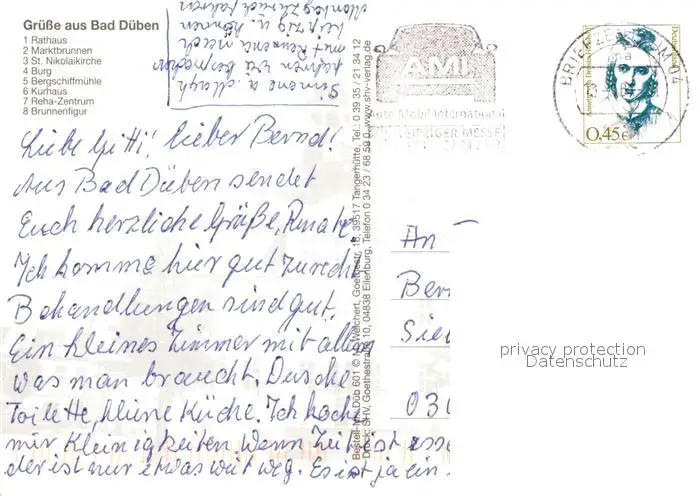 Grüße aus Bad Düben
1 Rathaus
2 Marktbrunnen
3 St. Nikolaikirche
4 Burg
5 Bergschiffmühle
6 Kurhaus
7 Reha-Zentrum
8 Brunnenfigur
Liebe Gitti! Lieber Bernd!
Aus Bad Düben sendet
Euch herzliche Grüße, Renate.
Ich komme hier gut zurecht
Behandlungen sind gut.
Ein kleines Zimmer mit allem
was man braucht. Dusche
Toilette, kleine Küche. Ich koche
mir Kleinigkeiten. Wenn Zeit ist esse
der ist nur etwas weit weg. Es ist ja ein
Simone u.
fahren wir
mit Renate nach
Leipzig u. können
Montag zurück fahren
Bestell-Nr. Düb 601 © M. Weichert, Goethestr. 16, 39517 Tangerhütte, Tel.: 0 39 35 / 21 34 12
Druck: SHV, Goethestraße 10, 04838 Eilenburg, Telefon 0 34 23 / 68 59 0, www.shv-verlag.de
AMI
Auto Mobil International
LEIPZIGER MESSE
BRIEFZENTRUM 04
Deutschland
0,45€
An
Ber
Sie
030
privacy protection
Datenschutz